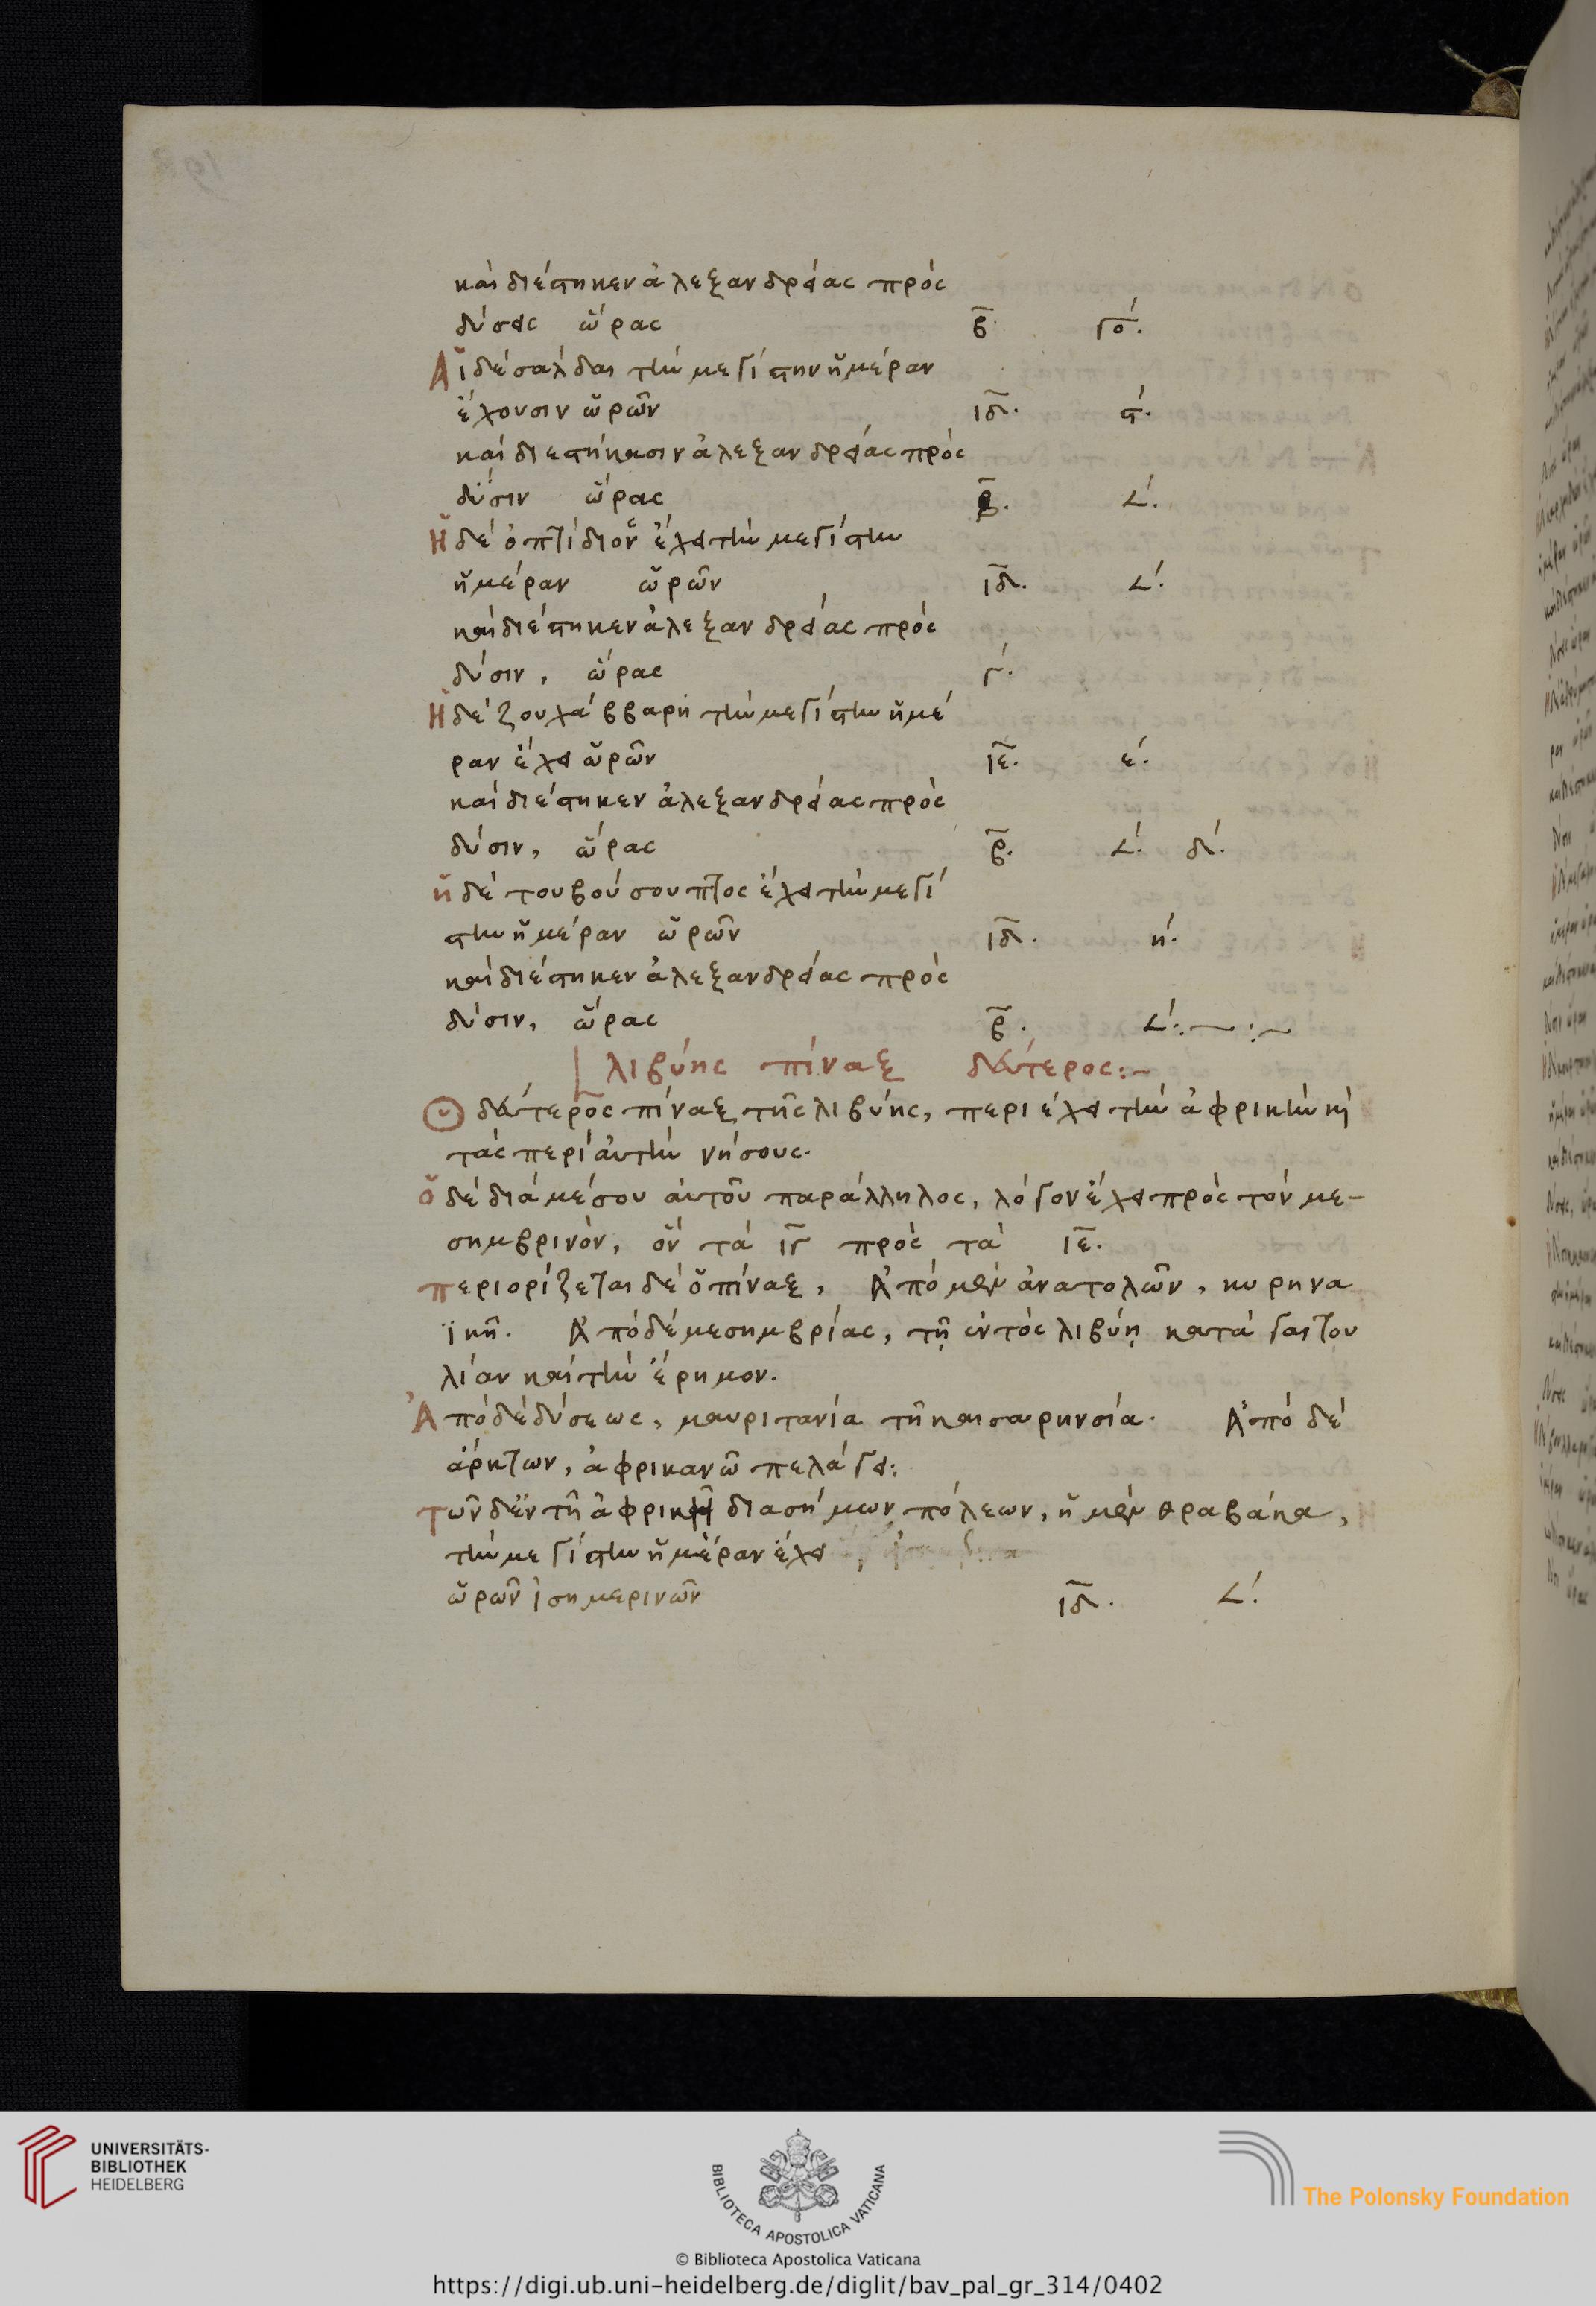 καὶ διέστηκεν ἀλεξανδρείας πρὸς
δύσεις ὥρας β γο΄.
Αἱ δὲ σάλδαι τὴν μεγίστην ἡμέραν
ἔχουσιν ὡρῶν ιδ. ϛ΄.
καὶ διεστήκασιν ἀλεξανδρείας πρὸς
δύσιν ὥρας β. 𐅵΄.
Ἡ δὲ ὀππίδιον ἔχει τὴν μεγίστην
ἡμέραν ὡρῶν ιδ. 𐅵΄.
καὶ διέστηκεν ἀλεξανδρείας πρὸς
δύσιν, ὥρας γ΄.
Ἡ δὲ ζουχάββαρη τὴν μεγίστην ἡμέ
ραν ἔχει ὡρῶν ιε. ε΄.
καὶ διέστηκεν ἀλεξανδρείας πρὸς
δύσιν, ὥρας β. 𐅵΄. δ΄.
ἡ δὲ τουβούσουπτος ἔχει τὴν μεγί
στην ἡμέραν ὡρῶν ιδ. η΄.
καὶ διέστηκεν ἀλεξανδρείας πρὸς
δύσιν, ὥρας β. 𐅵΄:~ :~
λιβύης πίναξ δεύτερος:~
Ὁ δεύτερος πίναξ τῆς λιβύης, περιέχει τὴν ἀφρικὴν κὶ
τὰς περὶ αὐτὴν νήσους.
ὁ δὲ διὰ μέσου αὐτοῦ παράλληλος, λόγον ἔχει πρὸς τὸν με-
σημβρινὸν, ὃν τὰ ιγ πρὸς τὰ ιε.
περιορίζεται δὲ ὁ πίναξ, Ἀπὸ μὲν ἀνατολῶν, κυρηνα
ϊκῆ. Ἀπὸ δὲ μεσημβρίας, τῇ ἐντὸς λιβύῃ κατὰ γαιτου
λίαν καὶ τὴν ἔρημον.
Ἀπὸ δὲ δύσεως, μαυριτανία τῆ καισαρηνσία. Ἀπὸ δὲ
ἄρκτων, ἀφρικανῶ πελάγει:
τῶν δὲ ἐν τῆ ἀφρικῆ διασήμων πόλεων, ἡ μὲν θραβάκα,
τὴν μεγίστην ἡμέραν ἔχει
ὡρῶν ἰσημερινῶν ιδ. 𐅵΄.
UNIVERSITÄTS-
BIBLIOTHEK
HEIDELBERG
BIBLIOTECA APOSTOLICA VATICANA
The Polonsky Foundation
© Biblioteca Apostolica Vaticana
https://digi.ub.uni-heidelberg.de/diglit/bav_pal_gr_314/0402